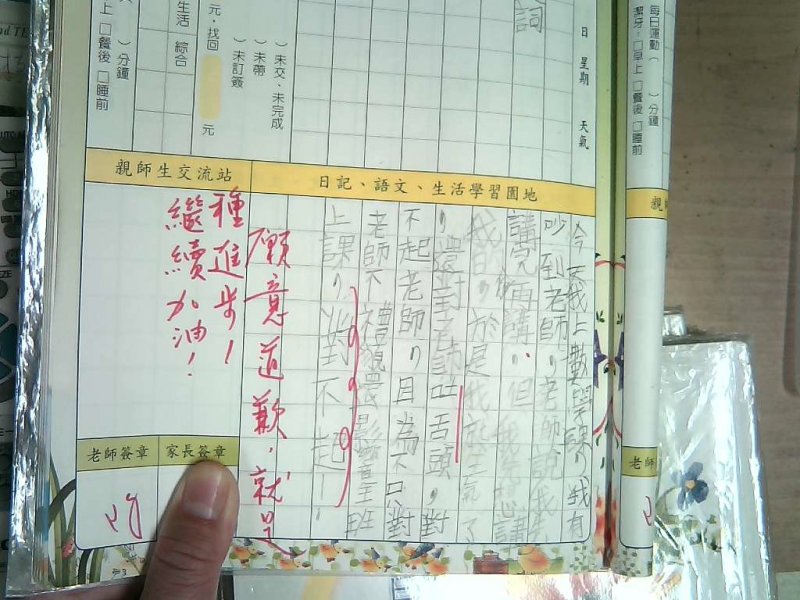 每日運動（　）分鐘
潔牙：□早上□餐後□睡前
日 星期 天氣
詞
）未交、未完成
）未帶
）未訂簽
元，找回　元
生活 綜合
）分鐘
上□餐後□睡前
日記、語文、生活學習園地
今天我上數學課，我有
吵到老師，老師說我
講完再講，但我想講
我的，於是我就生氣了
，還對老師吐舌頭，對
不起老師，因為不只對
老師不禮貌還影響全班
上課，對不起！
願意道歉，就是
親師生交流站
種進步！
繼續加油！
老師簽章
家長簽章
老師